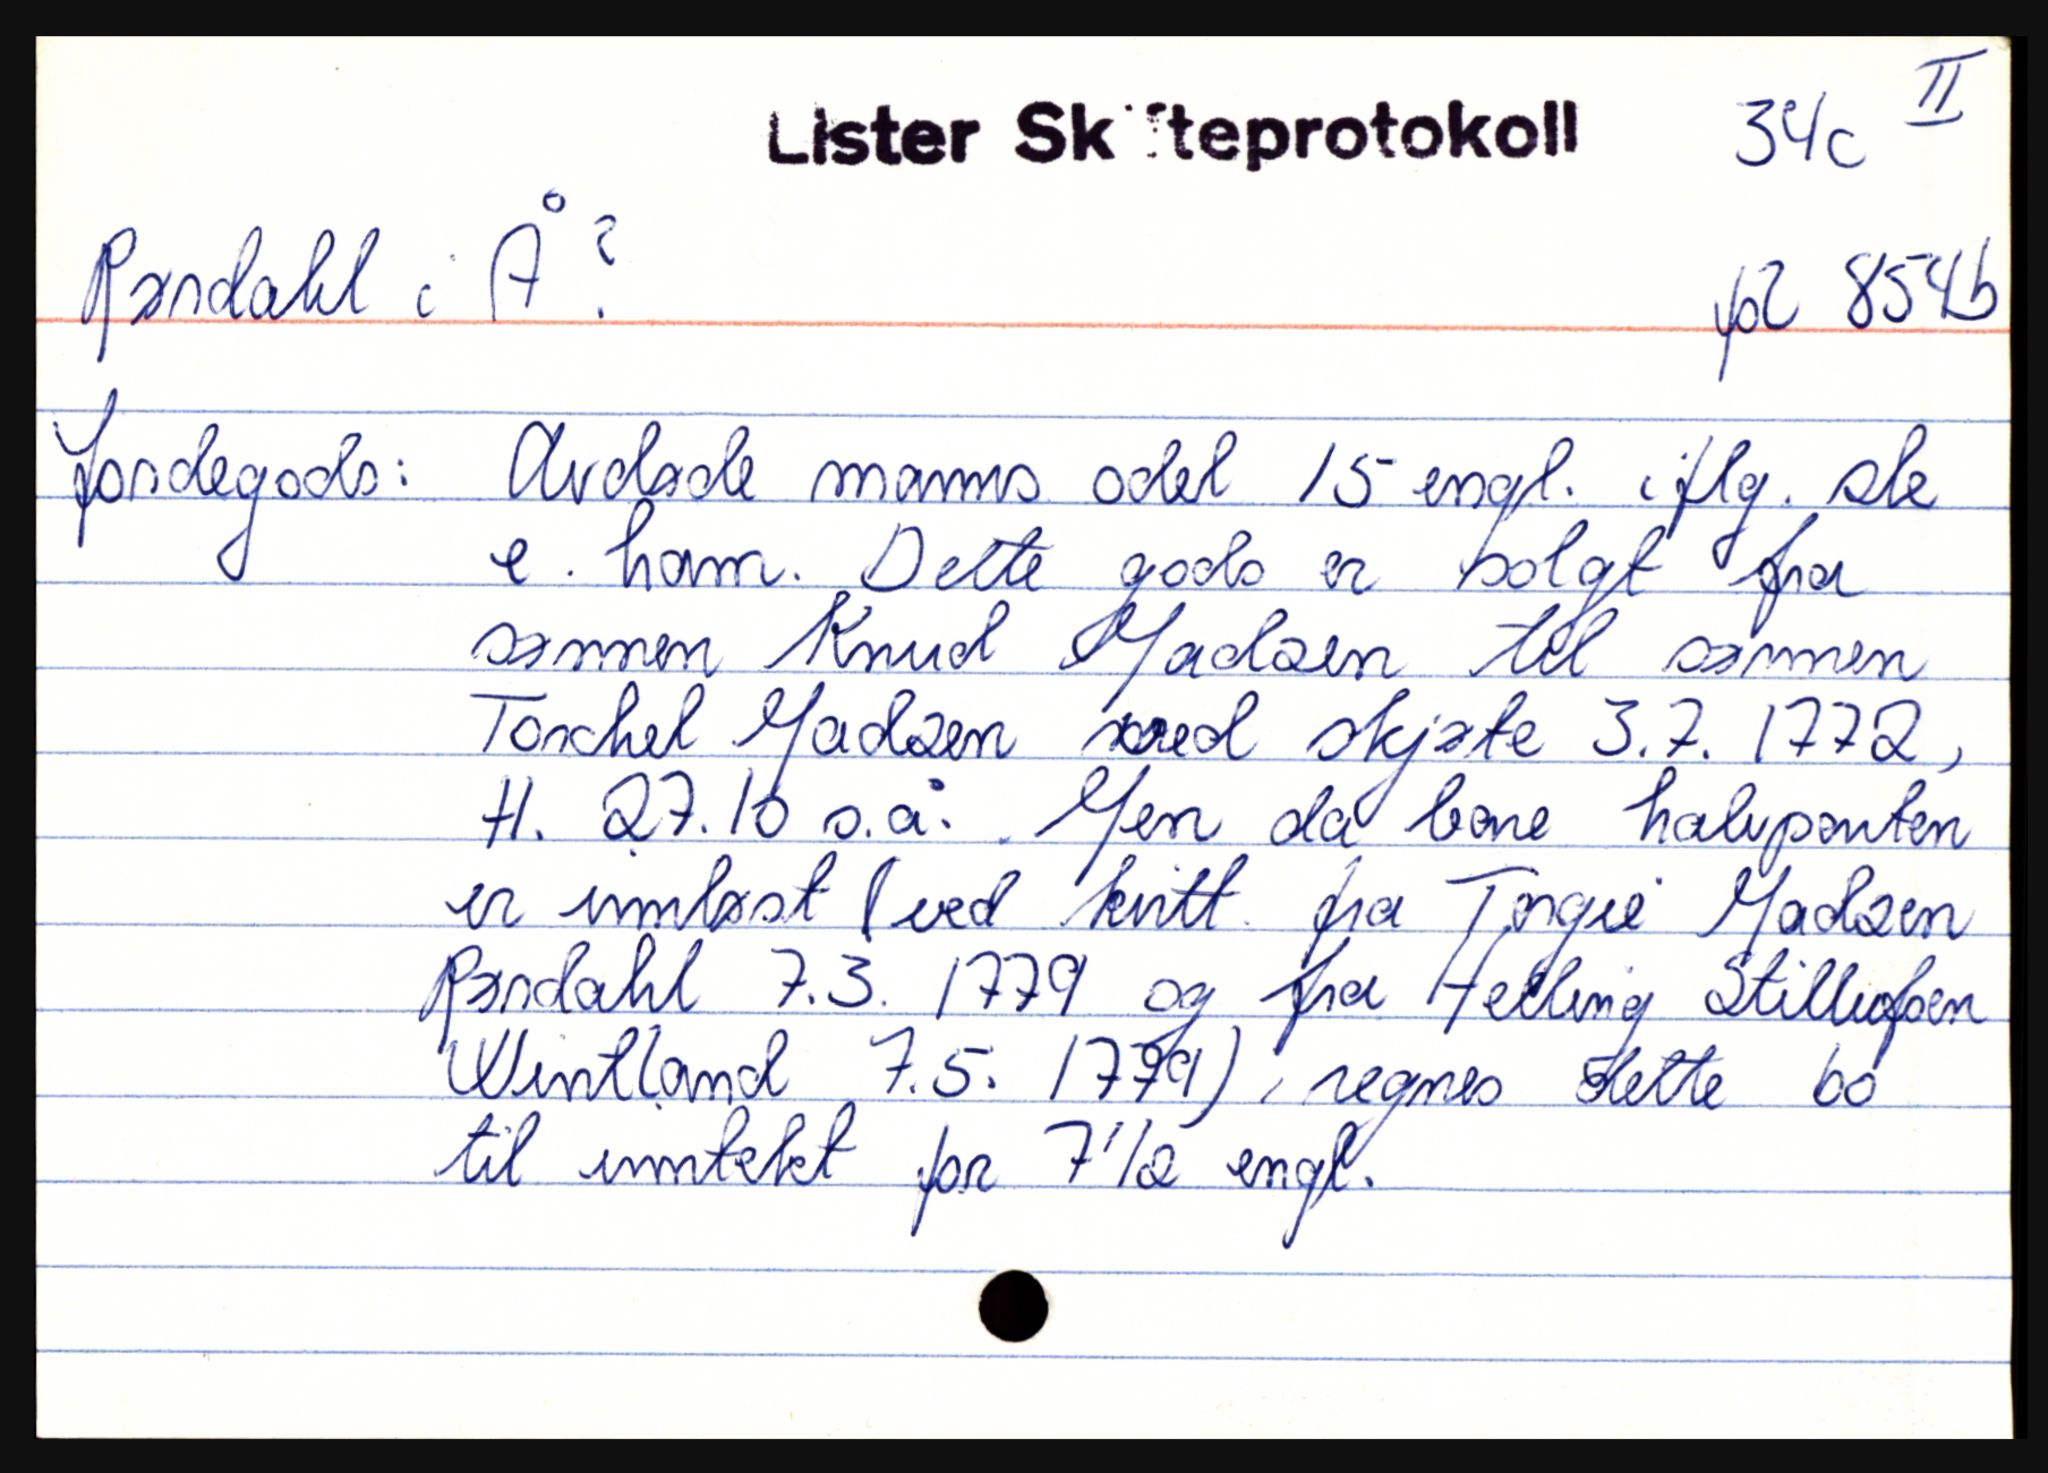 II
Lister Skifteprotokoll 34c
Rørdahl i Å?
fol 854b
Jordegods: Avdøde manns odel 15 engl. iflg. ske
e. ham. Dette gods er solgt fra
sønnen Knud Madsen til sønnen
Torchel Madsen ved skjøte 3.7. 1772,
tl. 27.10 s.å. Men da bare halvparten
er innløst (ved kvitt. fra Torgie Madsen
Rørdahl 7.3. 1779 og fra Helling Stillufsen
Wintland 7.5. 1779), regnes dette bo
til inntekt for 7 1/2 engl.